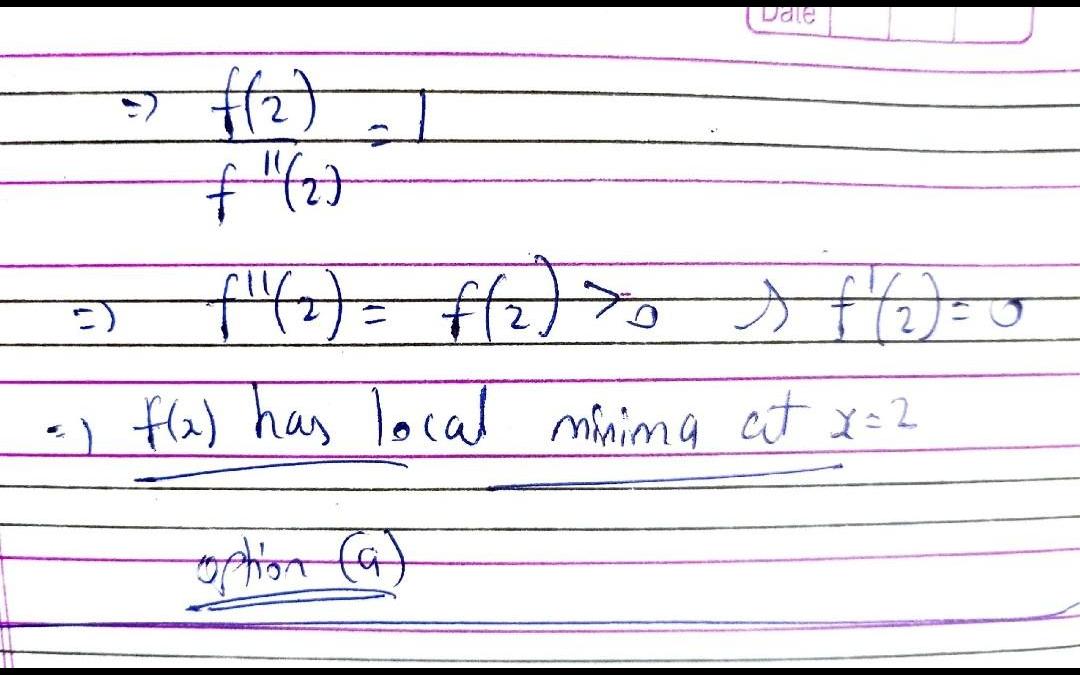 Date
=> f(2)/f''(2) = 1
=> f''(2) = f(2) > 0 & f'(2) = 0
=> f(x) has local minima at x=2
option (a)